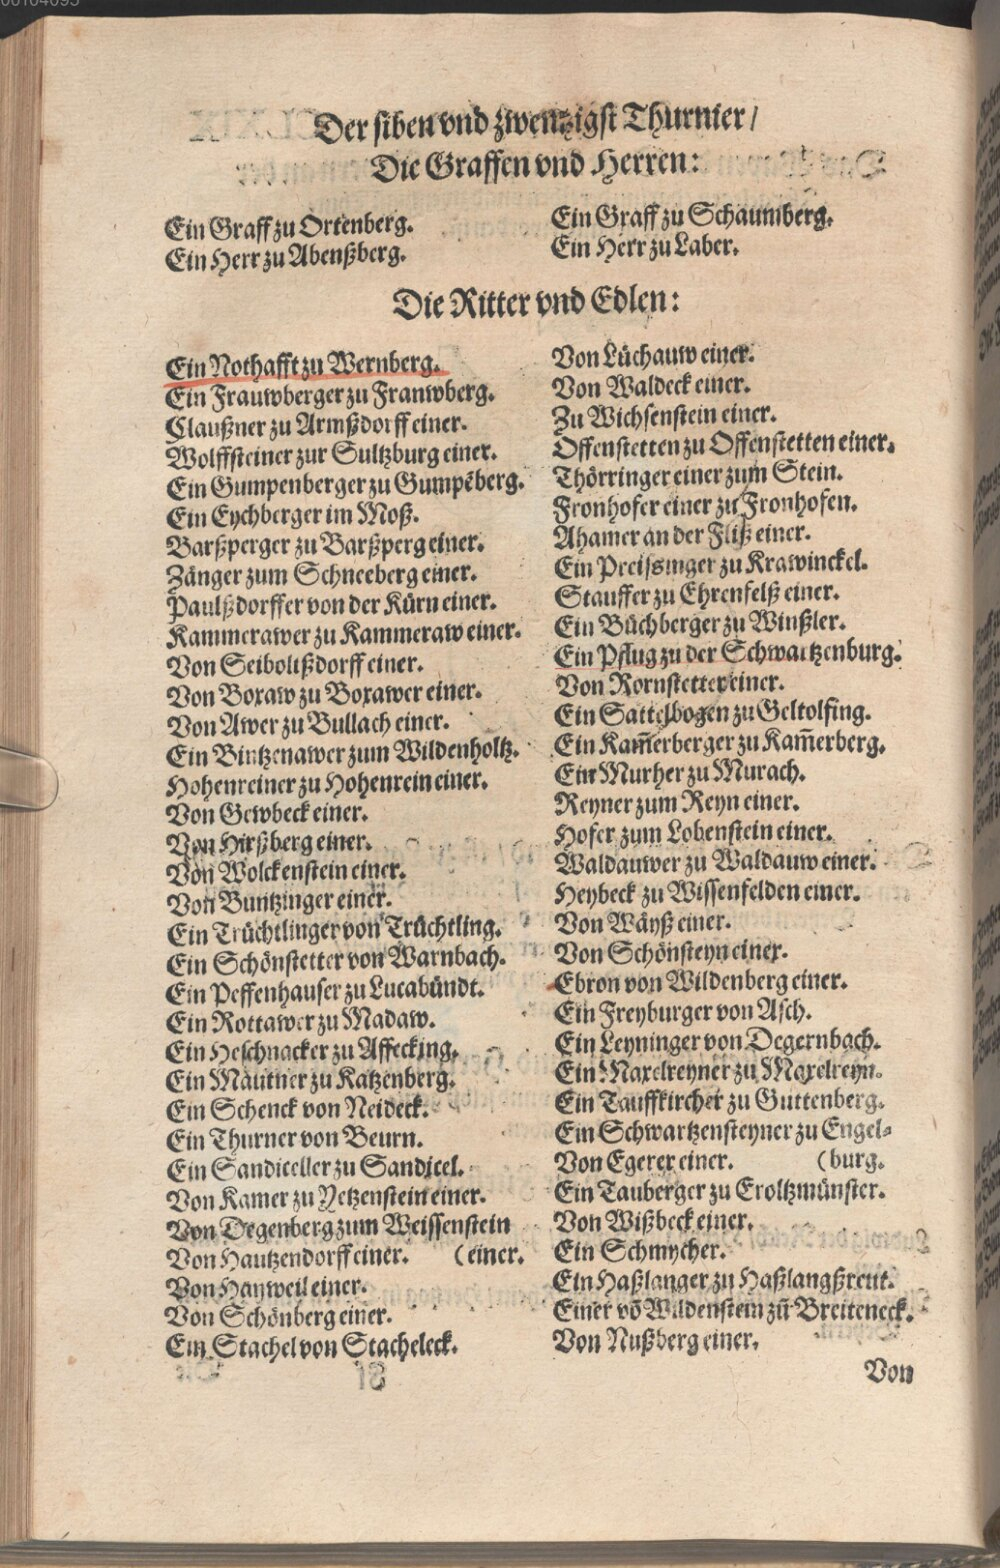 Der siben vnd zwentzigst Thurnier/
Die Graffen vnd Herren:
Ein Graff zu Ortenberg.
Ein Herr zu Abenßberg.
Ein Graff zu Schaumberg.
Ein Herr zu Laber.
Die Ritter vnd Edlen:
Ein Nothafft zu Wernberg.
Ein Frauwberger zu Franwberg.
Claußner zu Armßdorff einer.
Wolffsteiner zur Sultzburg einer.
Ein Gumpenberger zu Gumpēberg.
Ein Eychberger im Moß.
Barßperger zu Barßperg einer.
Zänger zum Schneeberg einer.
Paulßdorffer von der Kürn einer.
Kammerawer zu Kammeraw einer.
Von Seiboltßdorff einer.
Von Boxaw zu Boxawer einer.
Von Awer zu Bullach einer.
Ein Bintzenawer zum Wildenholtz.
Hohenreiner zu Hohenrein einer.
Von Gewbeck einer.
Von Hirßberg einer.
Von Wolckenstein einer.
Von Buntzinger einer.
Ein Trüchtlinger von Trüchtling.
Ein Schönstetter von Warnbach.
Ein Peffenhauser zu Lucabündt.
Ein Rottawer zu Madaw.
Ein Heschnacker zu Affecking.
Ein Mautner zu Katzenberg.
Ein Schenck von Neideck.
Ein Thurner von Beurn.
Ein Sandiceller zu Sandicel.
Von Kamer zu Yetzenstein einer.
Von Degenberg zum Weissenstein
Von Hautzendorff einer. (einer.
Von Hayweil einer.
Von Schönberg einer.
Ein Stachel von Stacheleck.
Von Lüchauw einer.
Von Waldeck einer.
Zu Wichsenstein einer.
Offenstetten zu Offenstetten einer.
Thörringer einer zum Stein.
Fronhofer einer zu Fronhofen.
Ahamer an der Fliß einer.
Ein Preissinger zu Krawinckel.
Stauffer zu Ehrenfelß einer.
Ein Büchberger zu Winßler.
Ein Pflug zu der Schwartzenburg.
Von Rornstetter einer.
Ein Sattelbogen zu Geltolfing.
Ein Kam̄erberger zu Kam̄erberg.
Ein Murher zu Murach.
Reyner zum Reyn einer.
Hofer zum Lobenstein einer.
Waldauwer zu Waldauw einer.
Heybeck zu Wissenfelden einer.
Von Wäyß einer.
Von Schönsteyn einer.
Ebron von Wildenberg einer.
Ein Freyburger von Asch.
Ein Leyninger von Degernbach.
Ein Maxelreyner zu Maxelreyn.
Ein Tauffkircher zu Guttenberg.
Ein Schwartzensteyner zu Engel-
Von Egerer einer. (burg.
Ein Tauberger zu Eroltzmünster.
Von Wißbeck einer.
Ein Schmycher.
Ein Haßlanger zu Haßlangßreut.
Einer vō Wildenstein zū Breiteneck.
Von Nußberg einer.
Von